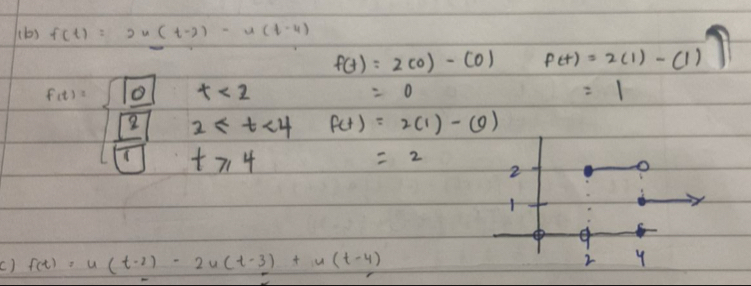 (b) f(t) = 2u(t-2) - u(t-4)
f(t) = 2(0) - (0)    f(t) = 2(1) - (1)
f(t) = { 0    t < 2    = 0    = 1
2    2 < t < 4    f(t) = 2(1) - (0)
1    t ⩾ 4    = 2
2
1
2    4
c) f(t) = u(t-2) - 2u(t-3) + u(t-4)